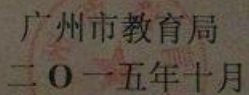 广州市教育局
二O一五年十月